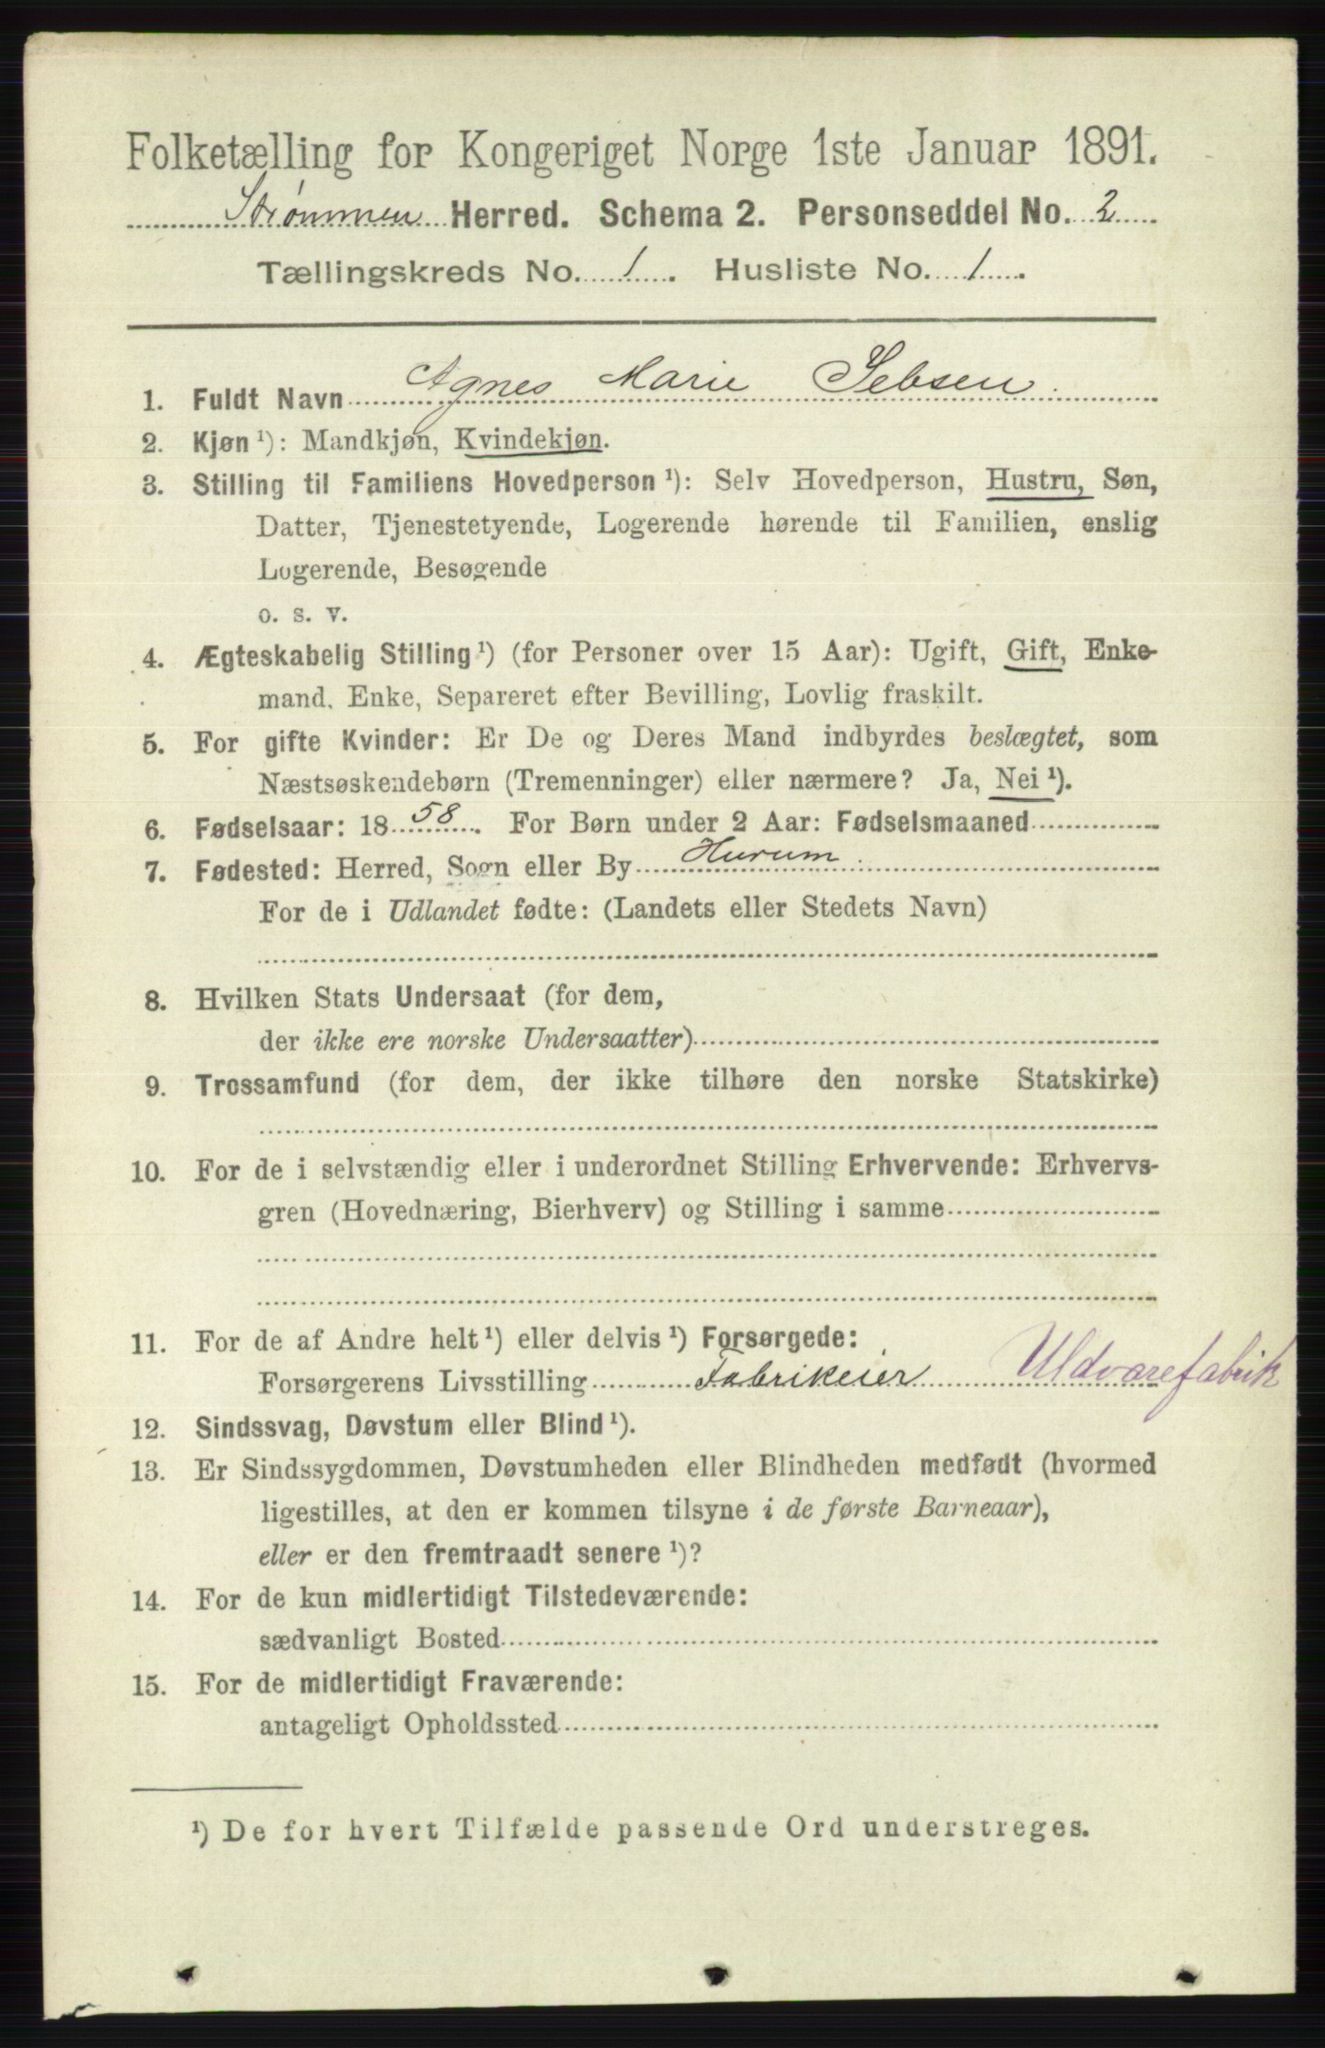 Folketælling for Kongeriget Norge 1ste Januar 1891.
Strømmen Herred. Schema 2. Personseddel No. 2
Tællingskreds No. 1. Husliste No. 1.
1. Fuldt Navn Agnes Marie Jebsen.
2. Kjøn ¹): Mandkjøn, Kvindekjøn.
3. Stilling til Familiens Hovedperson ¹): Selv Hovedperson, Hustru, Søn,
Datter, Tjenestetyende, Logerende hørende til Familien, enslig
Logerende, Besøgende
o. s. v.
4. Ægteskabelig Stilling ¹) (for Personer over 15 Aar): Ugift, Gift, Enke-
mand, Enke, Separeret efter Bevilling, Lovlig fraskilt.
5. For gifte Kvinder: Er De og Deres Mand indbyrdes beslægtet, som
Næstsøskendebørn (Tremenninger) eller nærmere? Ja, Nei ¹).
6. Fødselsaar: 1858. For Børn under 2 Aar: Fødselsmaaned
7. Fødested: Herred, Sogn eller By Hurum.
For de i Udlandet fødte: (Landets eller Stedets Navn)
8. Hvilken Stats Undersaat (for dem,
der ikke ere norske Undersaatter)
9. Trossamfund (for dem, der ikke tilhøre den norske Statskirke)
10. For de i selvstændig eller i underordnet Stilling Erhvervende: Erhvervs-
gren (Hovednæring, Bierhverv) og Stilling i samme
11. For de af Andre helt ¹) eller delvis ¹) Forsørgede:
Forsørgerens Livsstilling Fabrikeier Uldvarefabrik
12. Sindssvag, Døvstum eller Blind ¹).
13. Er Sindssygdommen, Døvstumheden eller Blindheden medfødt (hvormed
ligestilles, at den er kommen tilsyne i de første Barneaar),
eller er den fremtraadt senere ¹)?
14. For de kun midlertidigt Tilstedeværende:
sædvanligt Bosted
15. For de midlertidigt Fraværende:
antageligt Opholdssted
¹) De for hvert Tilfælde passende Ord understreges.